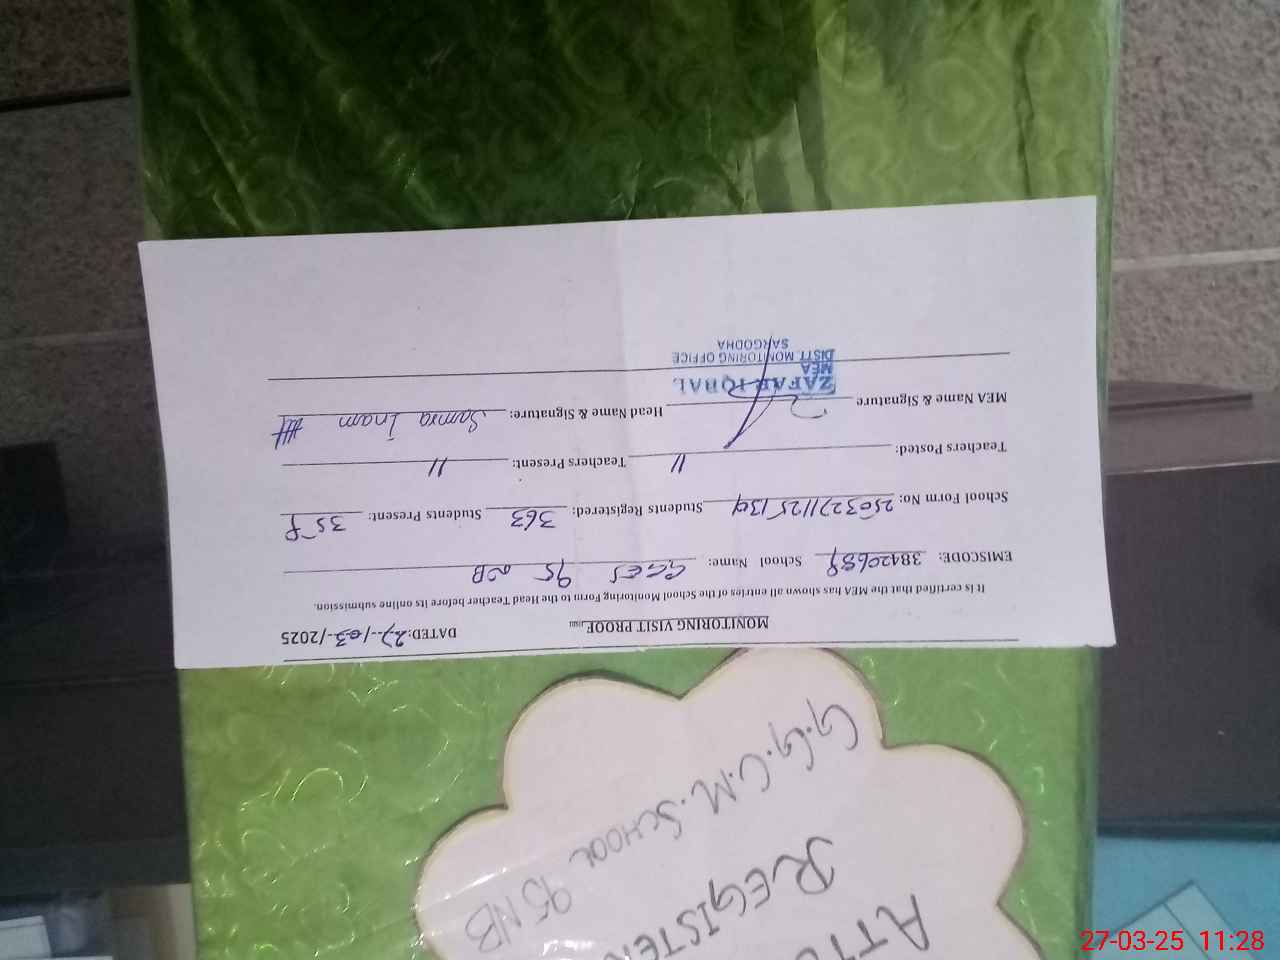 MONITORING VISIT PROOF
DATED: 27/03/2025
It is certified that the MEA has shown all entries of the School Monitoring Form to the Head Teacher before its online submission.
EMISCODE: School Name: GGES 95 NB
School Form No: Students Registered: 363 Students Present:
Teachers Posted: 11 Teachers Present: 11
MEA Name & Signature Head Name & Signature: Samra Inam
ZAFAR IQBAL
MEA
DISTT. MONITORING OFFICE
SARGODHA
G.G.C.M. SCHOOL 95 NB
REGISTER
27-03-25 11:28